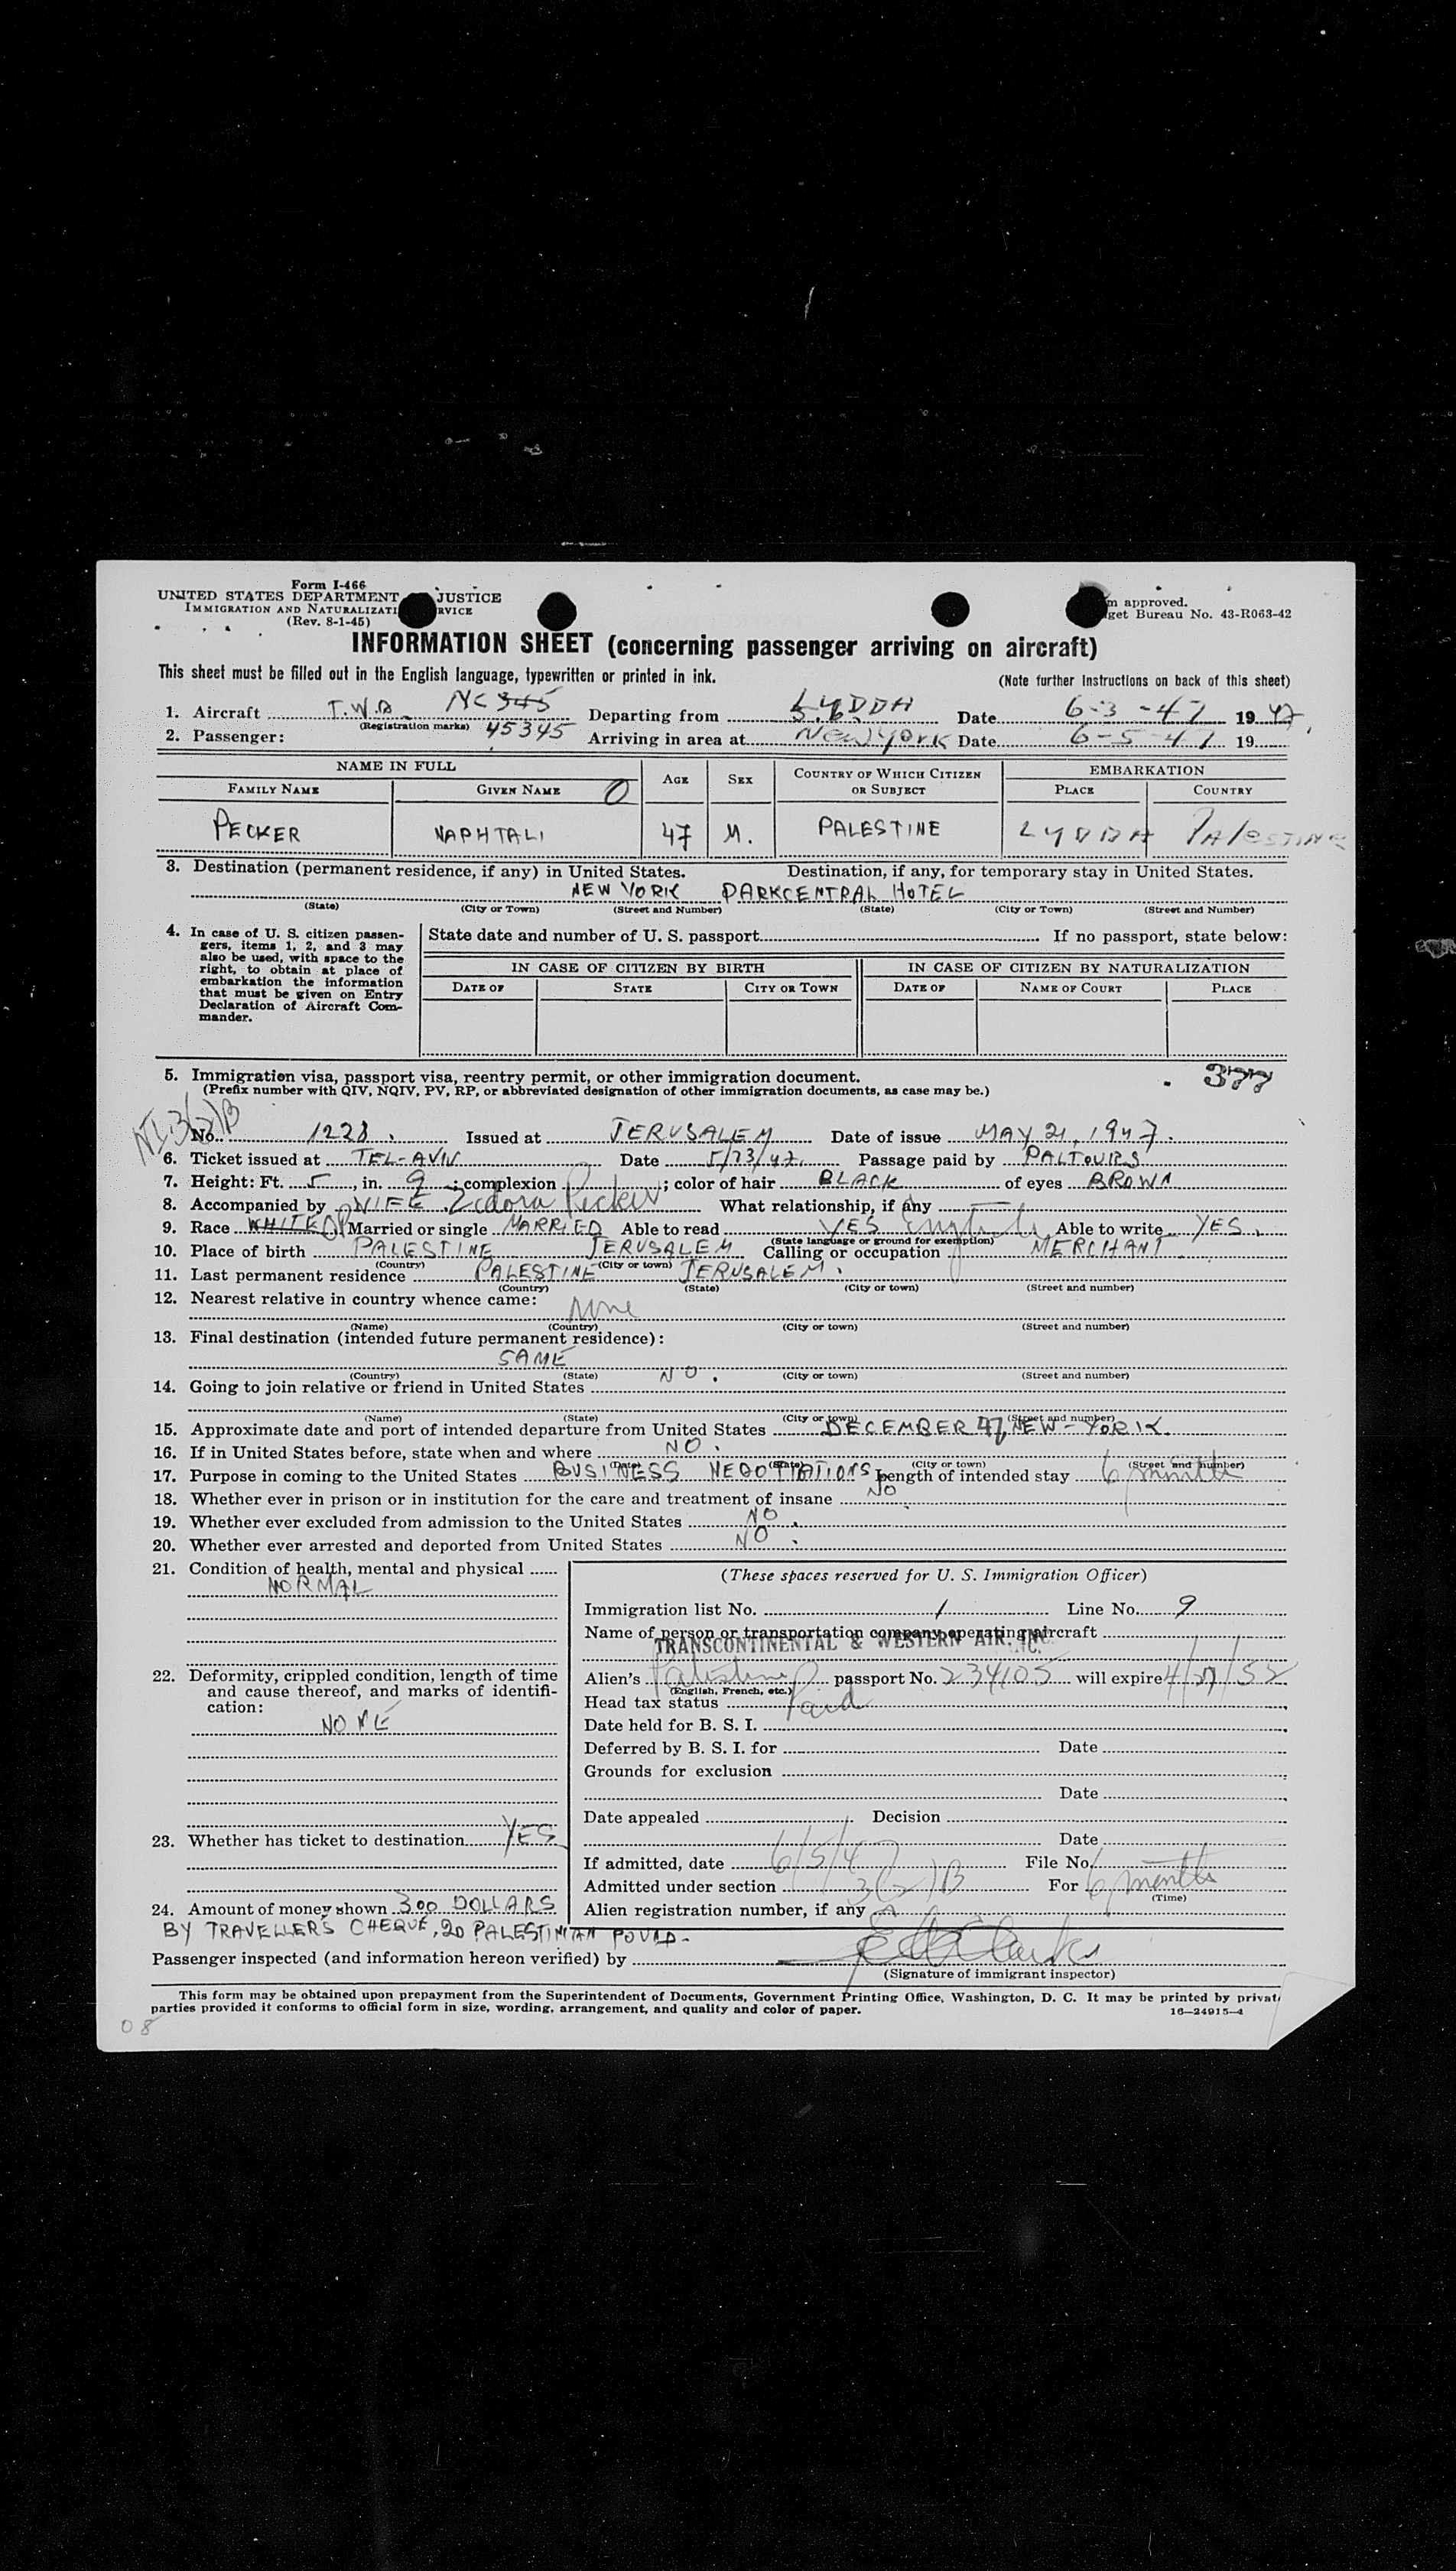 Form I-466
UNITED STATES DEPARTMENT JUSTICE
IMMIGRATION AND NATURALIZATI RVICE
(Rev. 8-1-45)
m approved.
get Bureau No. 43-R063-42
INFORMATION SHEET (concerning passenger arriving on aircraft)
This sheet must be filled out in the English language, typewritten or printed in ink. (Note further instructions on back of this sheet)
1. Aircraft T.W.A. NC 345 Departing from LYDDA Date 6-3-47 1947.
(Registration marks) 45345
2. Passenger: Arriving in area at New York Date 6-5-47 19
NAME IN FULL AGE SEX COUNTRY OF WHICH CITIZEN OR SUBJECT EMBARKATION
FAMILY NAME GIVEN NAME PLACE COUNTRY
PECKER NAPHTALI 47 M. PALESTINE LYDDA Palestine
3. Destination (permanent residence, if any) in United States. Destination, if any, for temporary stay in United States.
NEW YORK PARKCENTRAL HOTEL
(State) (City or Town) (Street and Number) (State) (City or Town) (Street and Number)
4. In case of U. S. citizen passengers, items 1, 2, and 3 may also be used, with space to the right, to obtain at place of embarkation the information that must be given on Entry Declaration of Aircraft Commander.
State date and number of U. S. passport If no passport, state below:
IN CASE OF CITIZEN BY BIRTH IN CASE OF CITIZEN BY NATURALIZATION
DATE OF STATE CITY OR TOWN DATE OF NAME OF COURT PLACE
5. Immigration visa, passport visa, reentry permit, or other immigration document. 377
(Prefix number with QIV, NQIV, PV, RP, or abbreviated designation of other immigration documents, as case may be.)
No. 1228. Issued at JERUSALEM Date of issue MAY 21, 1947.
6. Ticket issued at TEL-AVIV Date 5/23/47. Passage paid by PALTOURS
7. Height: Ft. 5, in. 9; complexion ; color of hair BLACK of eyes BROWN
8. Accompanied by WIFE. Zidora Pecker What relationship, if any
9. Race WHITE Married or single MARRIED Able to read YES English Able to write YES.
(State language or ground for exemption)
10. Place of birth PALESTINE JERUSALEM Calling or occupation MERCHANT
(Country) (City or town)
11. Last permanent residence PALESTINE JERUSALEM.
(Country) (State) (City or town) (Street and number)
12. Nearest relative in country whence came: None
(Name) (Country) (City or town) (Street and number)
13. Final destination (intended future permanent residence):
SAME
(Country) (State) (City or town) (Street and number)
14. Going to join relative or friend in United States NO.
(Name) (State) (City or town) (Street and number)
15. Approximate date and port of intended departure from United States DECEMBER 47, NEW-YORK.
16. If in United States before, state when and where NO.
(Date) (State) (City or town) (Street and number)
17. Purpose in coming to the United States BUSINESS NEGOTIATIONS Length of intended stay 6 months
18. Whether ever in prison or in institution for the care and treatment of insane NO
19. Whether ever excluded from admission to the United States NO.
20. Whether ever arrested and deported from United States NO.
21. Condition of health, mental and physical
NORMAL
22. Deformity, crippled condition, length of time
and cause thereof, and marks of identification:
NONE
23. Whether has ticket to destination YES
24. Amount of money shown 300 DOLLARS
BY TRAVELLER'S CHEQUE, 20 PALESTINIAN POUND-
(These spaces reserved for U. S. Immigration Officer)
Immigration list No. 1 Line No. 9
Name of person or transportation company operating aircraft
TRANSCONTINENTAL & WESTERN AIR, INC.
Alien's Palestine passport No. 234105 will expire 4/27/52
(English, French, etc.)
Head tax status Paid
Date held for B. S. I.
Deferred by B. S. I. for Date
Grounds for exclusion
Date
Date appealed Decision
Date
If admitted, date 6/5/47 File No.
Admitted under section 3(2)B For 6 months
(Time)
Alien registration number, if any
Passenger inspected (and information hereon verified) by
(Signature of immigrant inspector)
This form may be obtained upon prepayment from the Superintendent of Documents, Government Printing Office, Washington, D. C. It may be printed by privat
parties provided it conforms to official form in size, wording, arrangement, and quality and color of paper. 16—24915-4
08